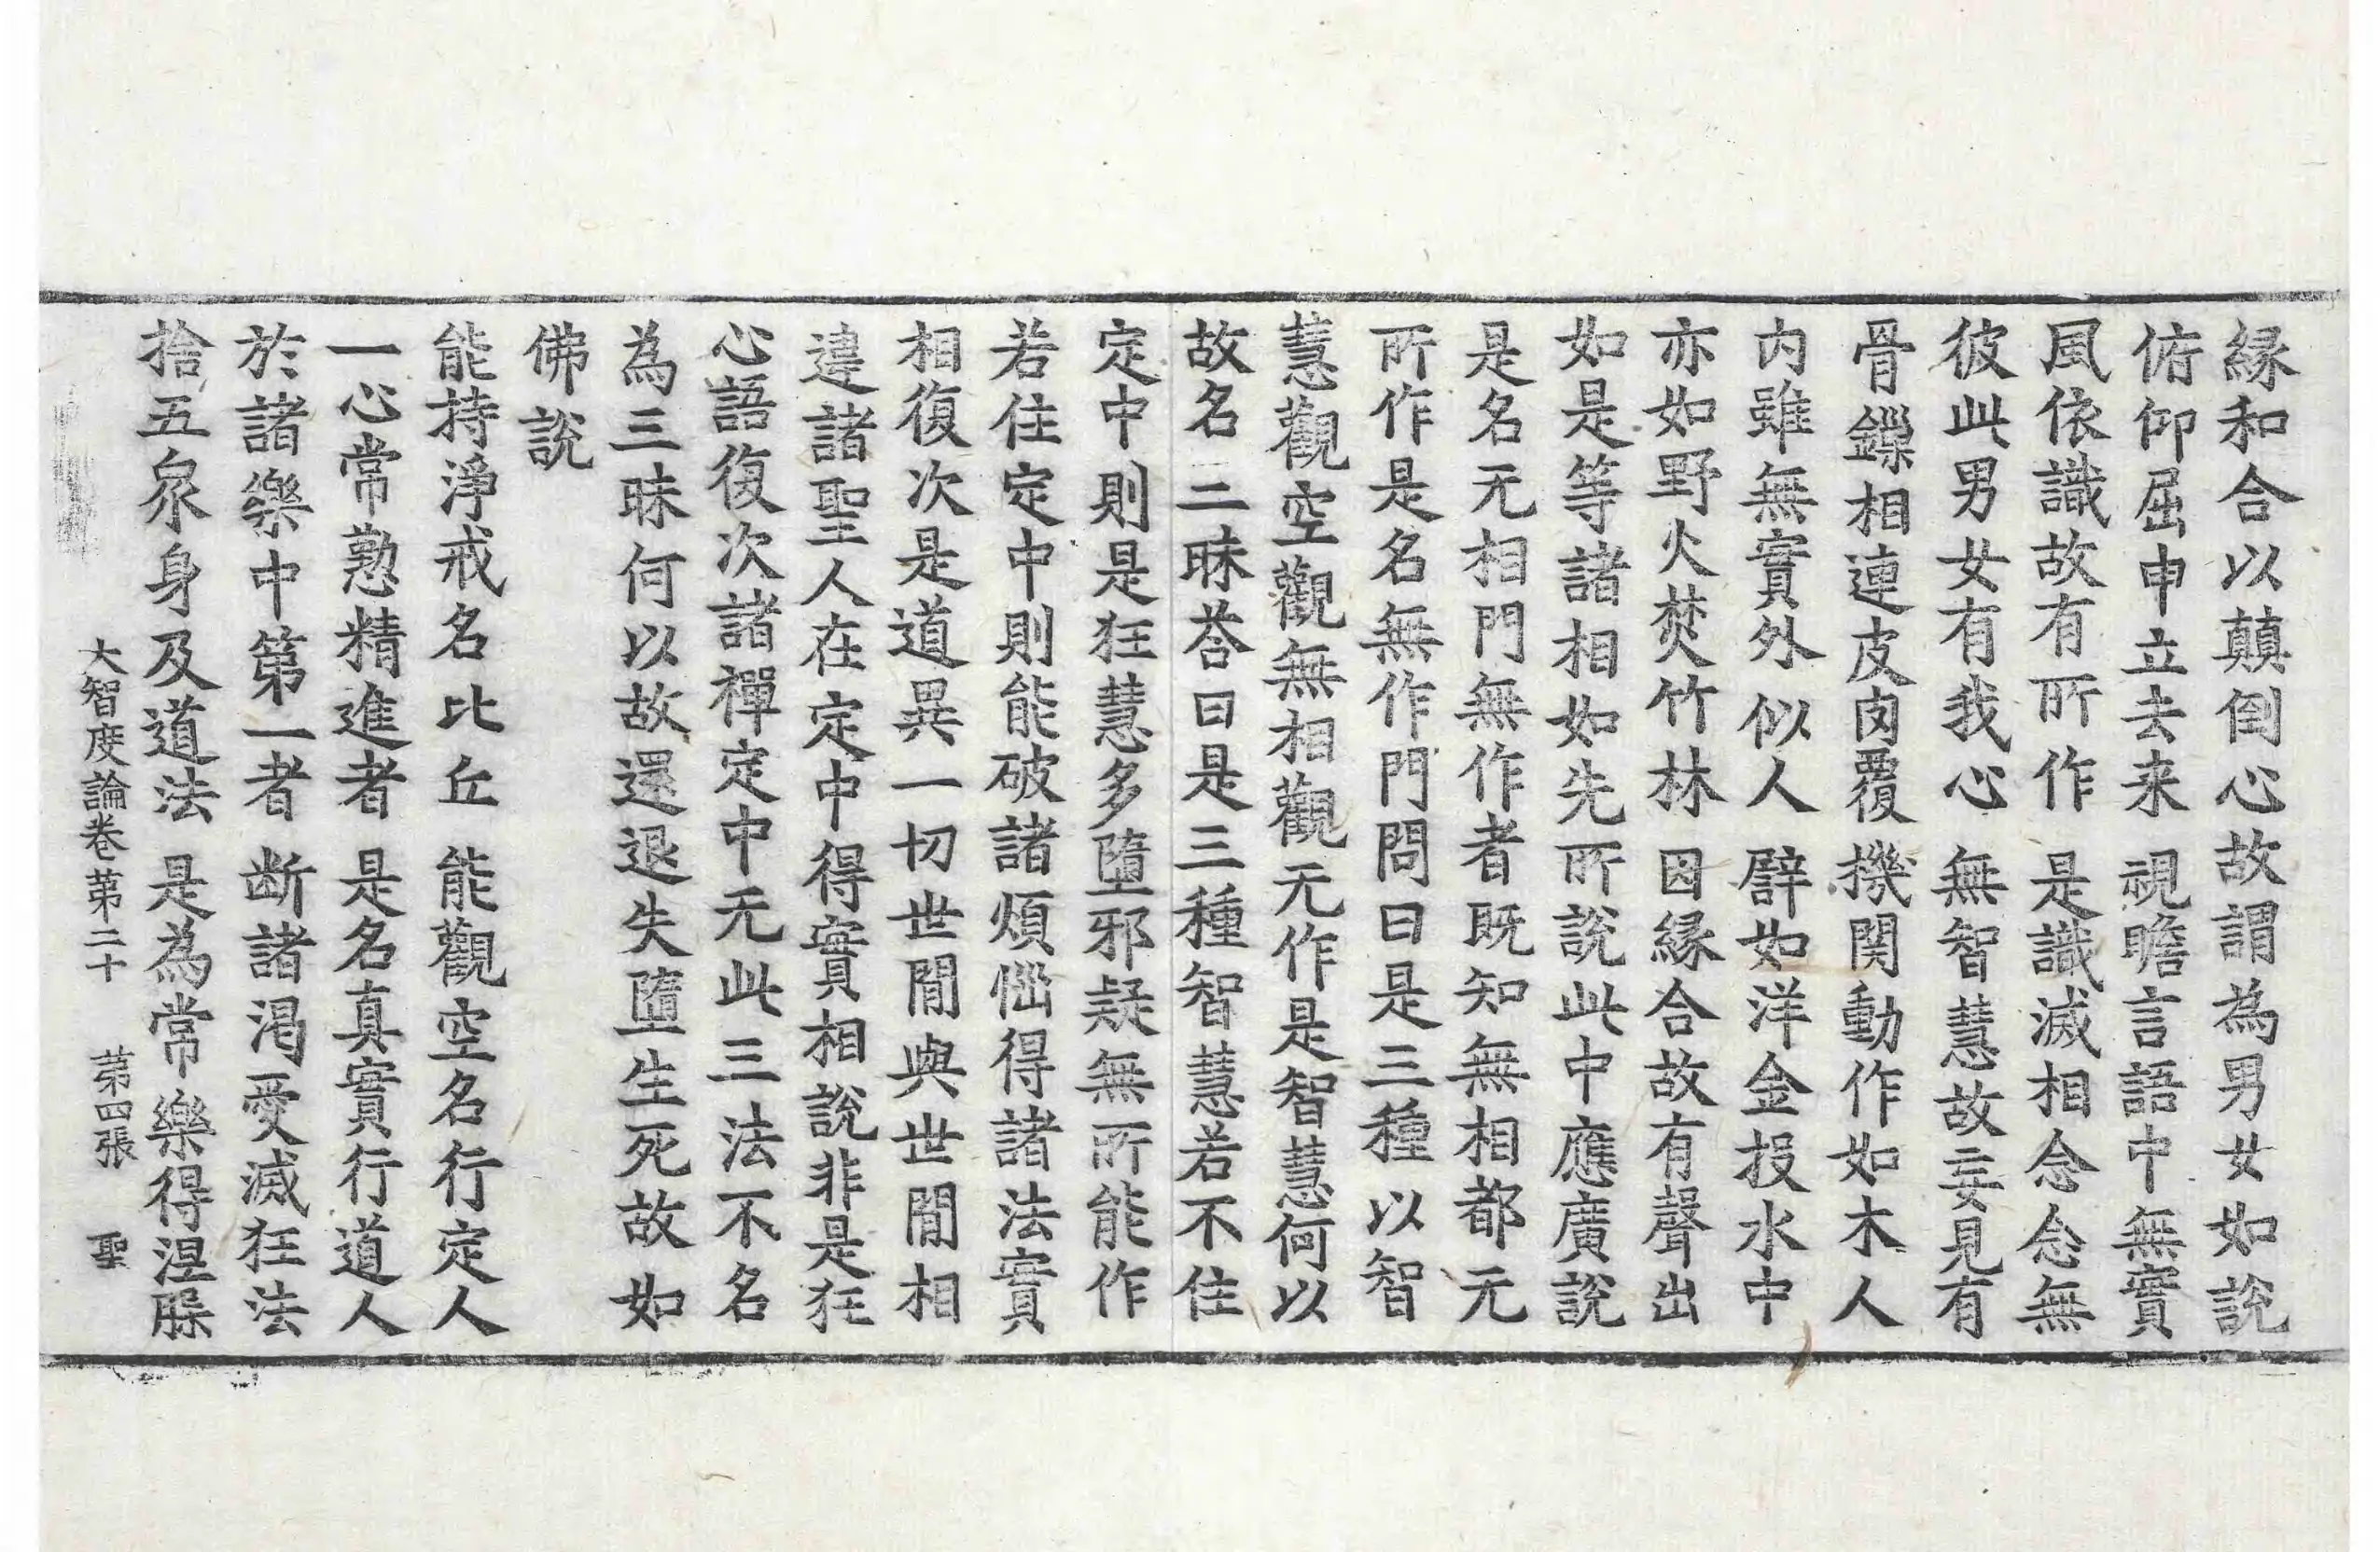 縁和合以顛倒心故謂為男女如說
俯仰屈申立去来 視瞻言語中無實
風依識故有所作 是識滅相念念無
彼此男女有我心 無智慧故妄見有
骨鏁相連皮肉覆 機関動作如木人
内雖無實外似人 譬如洋金投水中
亦如野火焚竹林 因縁合故有聲出
如是等諸相如先所說此中應廣說
是名无相門無作者既知無相都无
所作是名無作門問曰是三種以智
慧觀空觀無相觀无作是智慧何以
故名三昧荅曰是三種智慧若不住
定中則是狂慧多墮邪疑無所能作
若住定中則能破諸煩惱得諸法實
相復次是道異一切世間與世間相
違諸聖人在定中得實相說非是狂
心語復次諸禪定中无此三法不名
為三昧何以故還退失墮生死故如
佛說
能持淨戒名比丘 能觀空名行定人
一心常懃精進者 是名真實行道人
於諸樂中第一者 断諸渇愛滅狂法
捨五衆身及道法 是為常樂得涅槃
大智度論卷苐二十 苐四張 聖